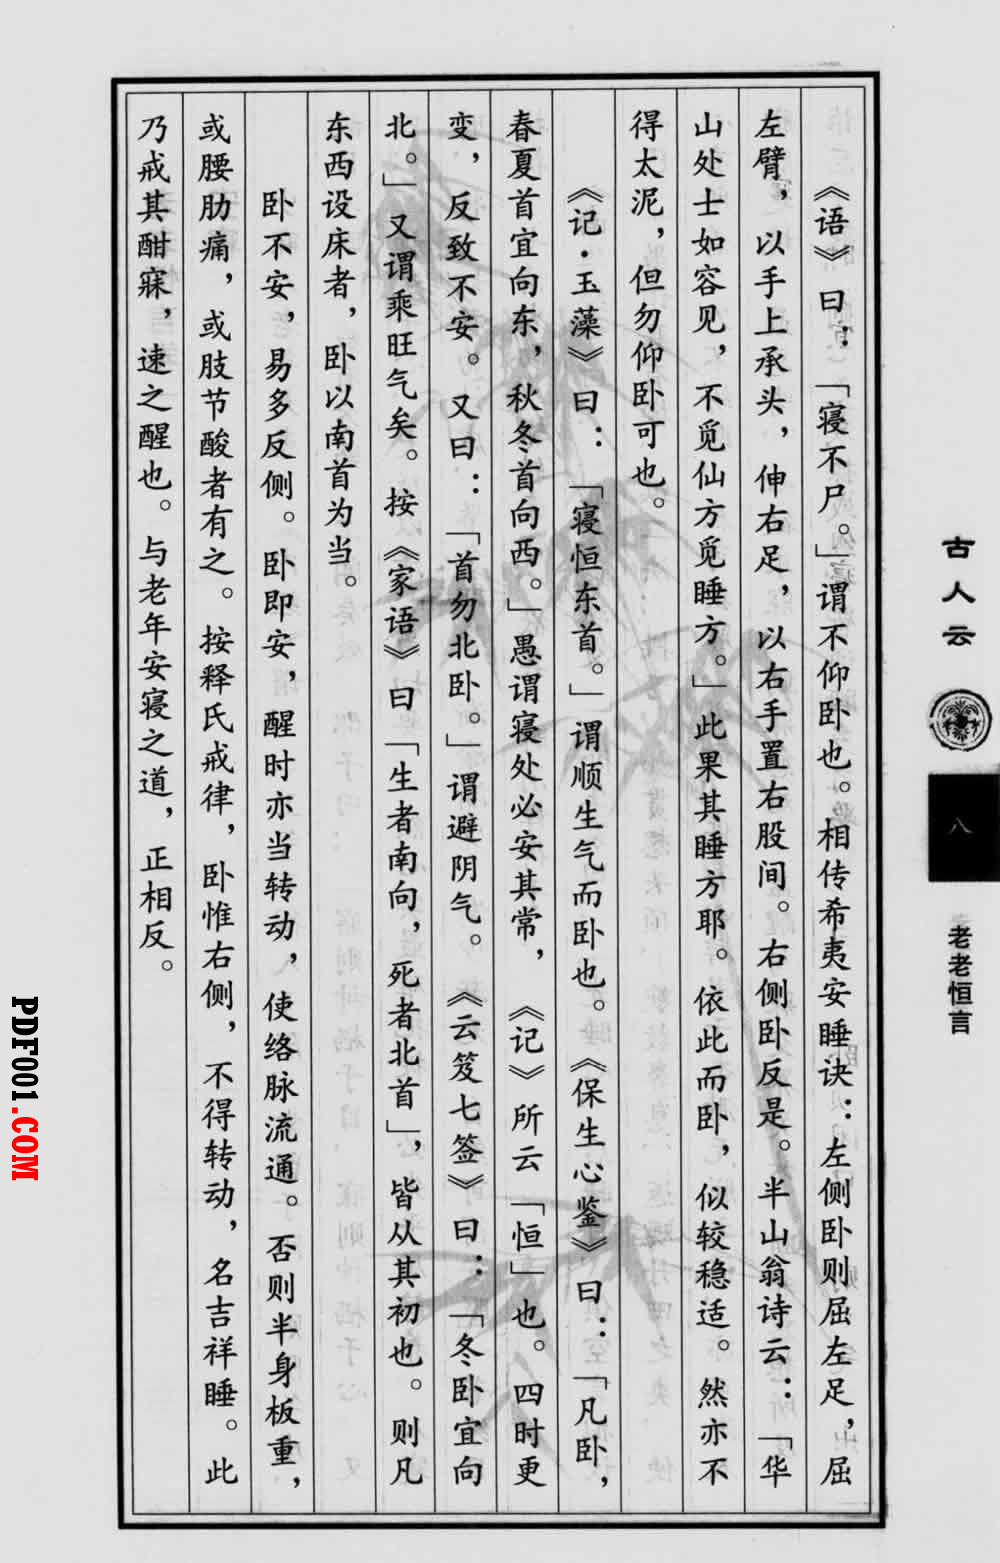 《语》曰：「寝不尸。」谓不仰卧也。相传希夷安睡诀：左侧卧则屈左足，屈
左臂，以手上承头，伸右足，以右手置右股间。右侧卧反是。半山翁诗云：「华
山处士如容见，不觅仙方觅睡方。」此果其睡方耶。依此而卧，似较稳适。然亦不
得太泥，但勿仰卧可也。
《记·玉藻》曰：「寝恒东首。」谓顺生气而卧也。《保生心鉴》曰：「凡卧，
春夏首宜向东，秋冬首向西。」愚谓寝处必安其常，《记》所云「恒」也。四时更
变，反致不安。又曰：「首勿北卧。」谓避阴气。《云笈七签》曰：「冬卧宜向
北。」又谓乘旺气矣。按《家语》曰「生者南向，死者北首」，皆从其初也。则凡
东西设床者，卧以南首为当。
卧不安，易多反侧。卧即安，醒时亦当转动，使络脉流通。否则半身板重，
或腰肋痛，或肢节酸者有之。按释氏戒律，卧惟右侧，不得转动，名吉祥睡。此
乃戒其酣寐，速之醒也。与老年安寝之道，正相反。
古人云
八
老老恒言
PDF001.COM